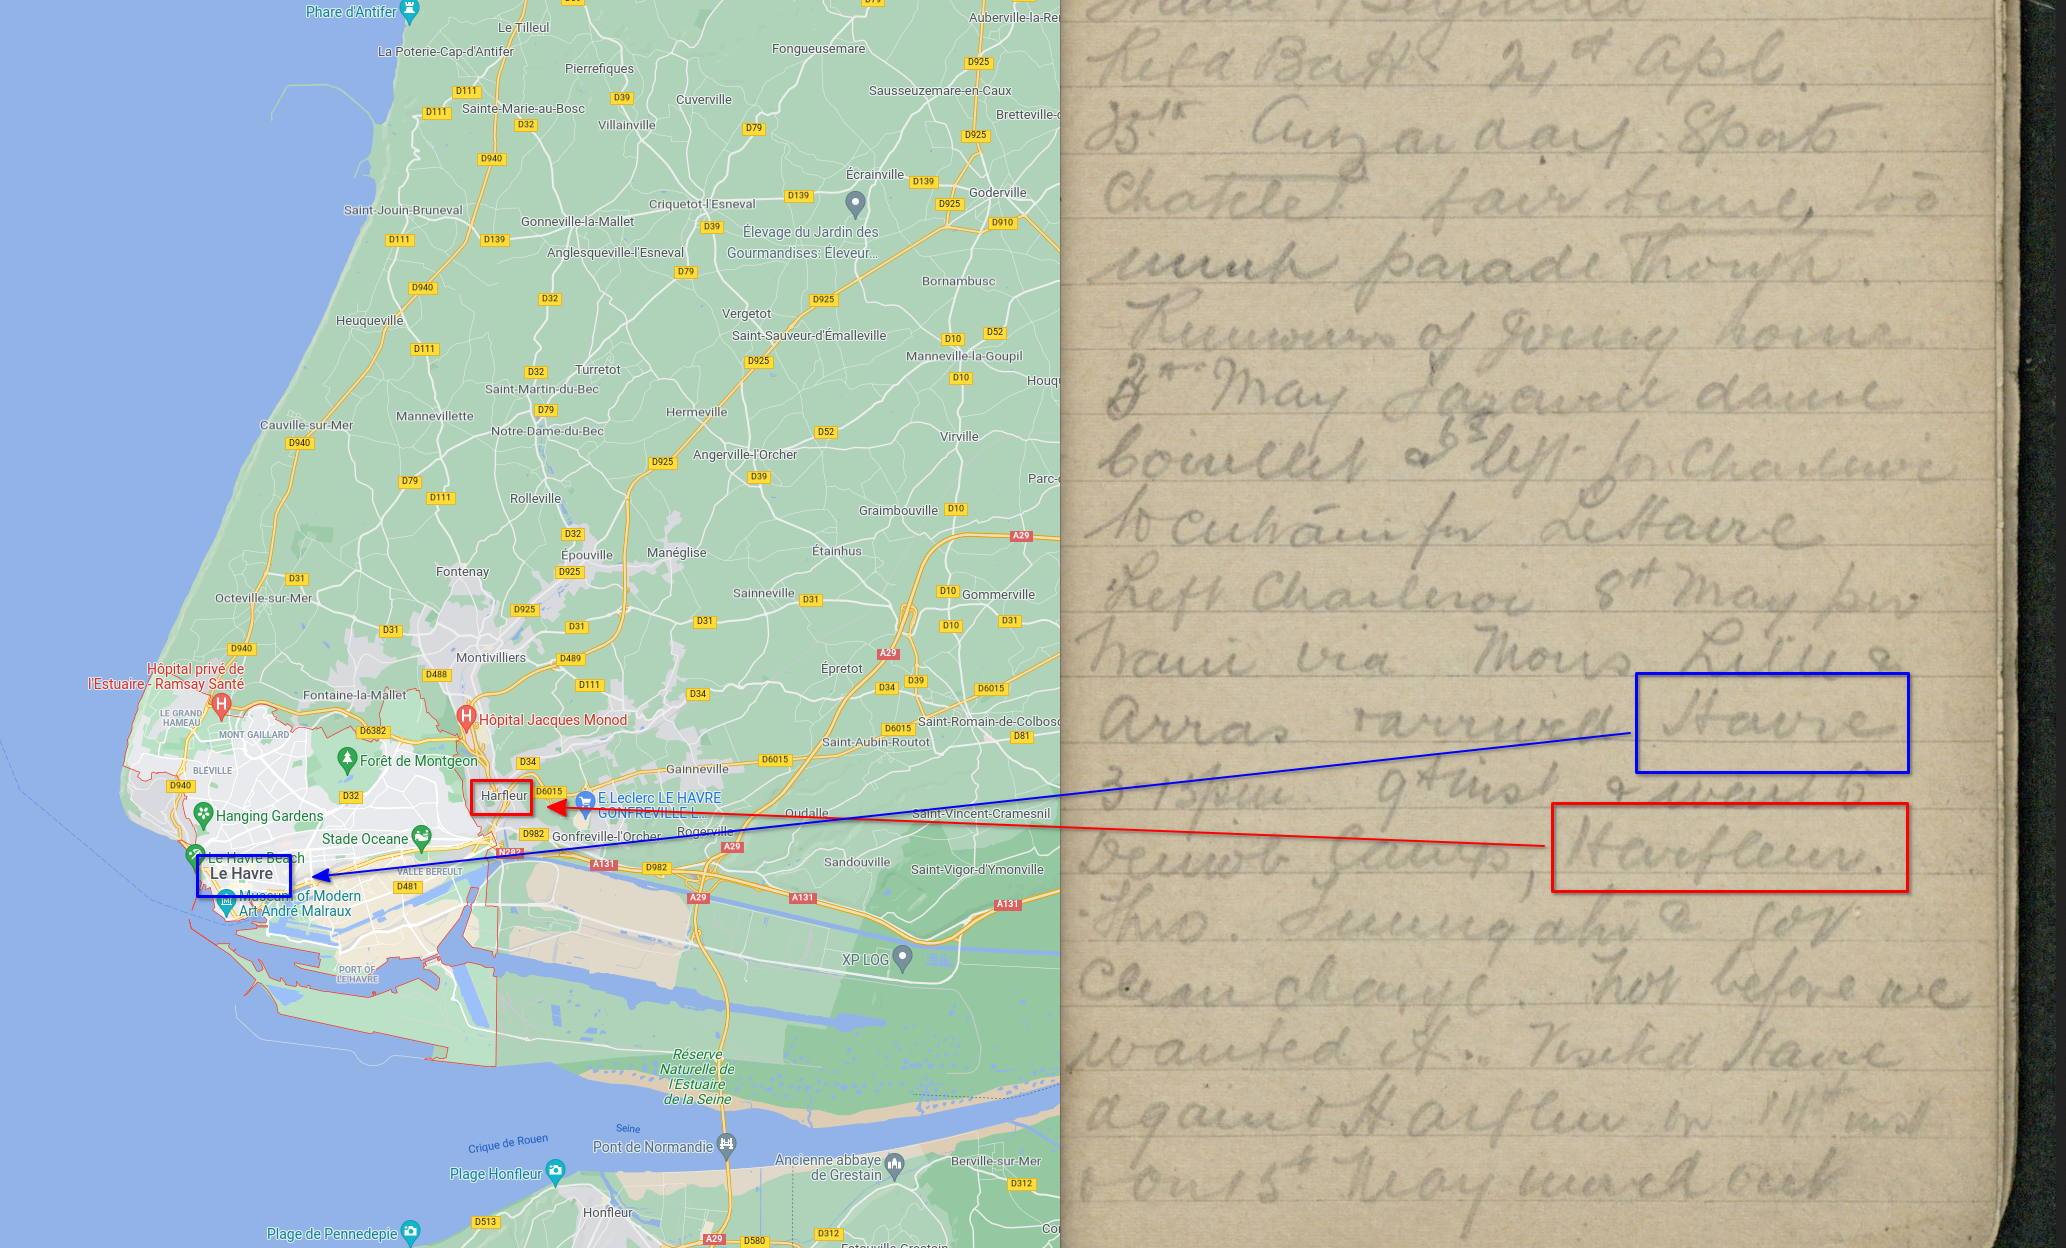 Phare d'Antifer
Le Tilleul
D79
Auberville-la-Re
La Poterie-Cap-d'Antifer
Fongueusemare
D925
Pierrefiques
D111
D39
Cuverville
Sausseuzemare-en-Caux
D111
Sainte-Marie-au-Bosc
D32
Villainville
D79
Bretteville-
D925
D940
Écrainville
D139
D139
Goderville
Saint-Jouin-Bruneval
Criquetot-l'Esneval
D925
Gonneville-la-Mallet
D39
D910
D111
D139
Élevage du Jardin des
Gourmandises: Éleveur...
Anglesqueville-l'Esneval
D79
D940
Bornambusc
D32
D925
Heuqueville
Vergetot
Saint-Sauveur-d'Émalleville
D10
D52
D111
D925
Manneville-la-Goupil
D32
Turretot
D10
Houq
Saint-Martin-du-Bec
Mannevillette
D79
Hermeville
Cauville-sur-Mer
Notre-Dame-du-Bec
D52
Virville
D940
Angerville-l'Orcher
D925
D39
Parc-
D79
D111
Rolleville
Graimbouville
D10
D32
A29
Épouville
Manéglise
Étainhus
Fontenay
D925
D31
Octeville-sur-Mer
Sainneville
D31
D10
Gommerville
D925
D31
D31
D31
D10
D940
Montivilliers
D489
A29
Hôpital privé de
l'Estuaire - Ramsay Santé
Épretot
D488
D111
D34
D34
D39
D6015
Fontaine-la-Mallet
LE GRAND
HAMEAU
Hôpital Jacques Monod
Saint-Romain-de-Colbosc
MONT GAILLARD
D6382
D6015
D81
Saint-Aubin-Routot
Forêt de Montgeon
D34
D6015
BLÉVILLE
Gainneville
D940
D32
Harfleur
D6015
E.Leclerc LE HAVRE
GONFREVILLE L...
Hanging Gardens
Oudalle
Saint-Vincent-Cramesnil
Stade Oceane
D982
Gonfreville-l'Orcher
Rogerville
N282
A29
Le Havre Beach
A131
D982
Sandouville
Saint-Vigor-d'Ymonville
Le Havre
VALLE BEREULT
D481
Museum of Modern
Art André Malraux
A29
A131
A131
PORT OF
LE HAVRE
XP LOG
Réserve
Naturelle de
l'Estuaire
de la Seine
Seine
Crique de Rouen
Pont de Normandie
Plage Honfleur
Ancienne abbaye
de Grestain
Berville-sur-Mer
D312
Honfleur
D513
Plage de Pennedepie
A29
D580
D312
Rej'd Batt 24th Apl.
25th Anzac day Sports
Charleroi fair time, too
much parade though.
Rumours of going home
3rd May Farewell dance
6th left for Charleroi
to entrain for Le Havre
Left Charleroi 8th May per
train via Mons Lille &
Arras & arrived Havre
9th inst & went to
Harfleur.
clean change. Not before we
wanted it. Visited Havre
again & Harfleur on 11th inst
& on 13th May march out